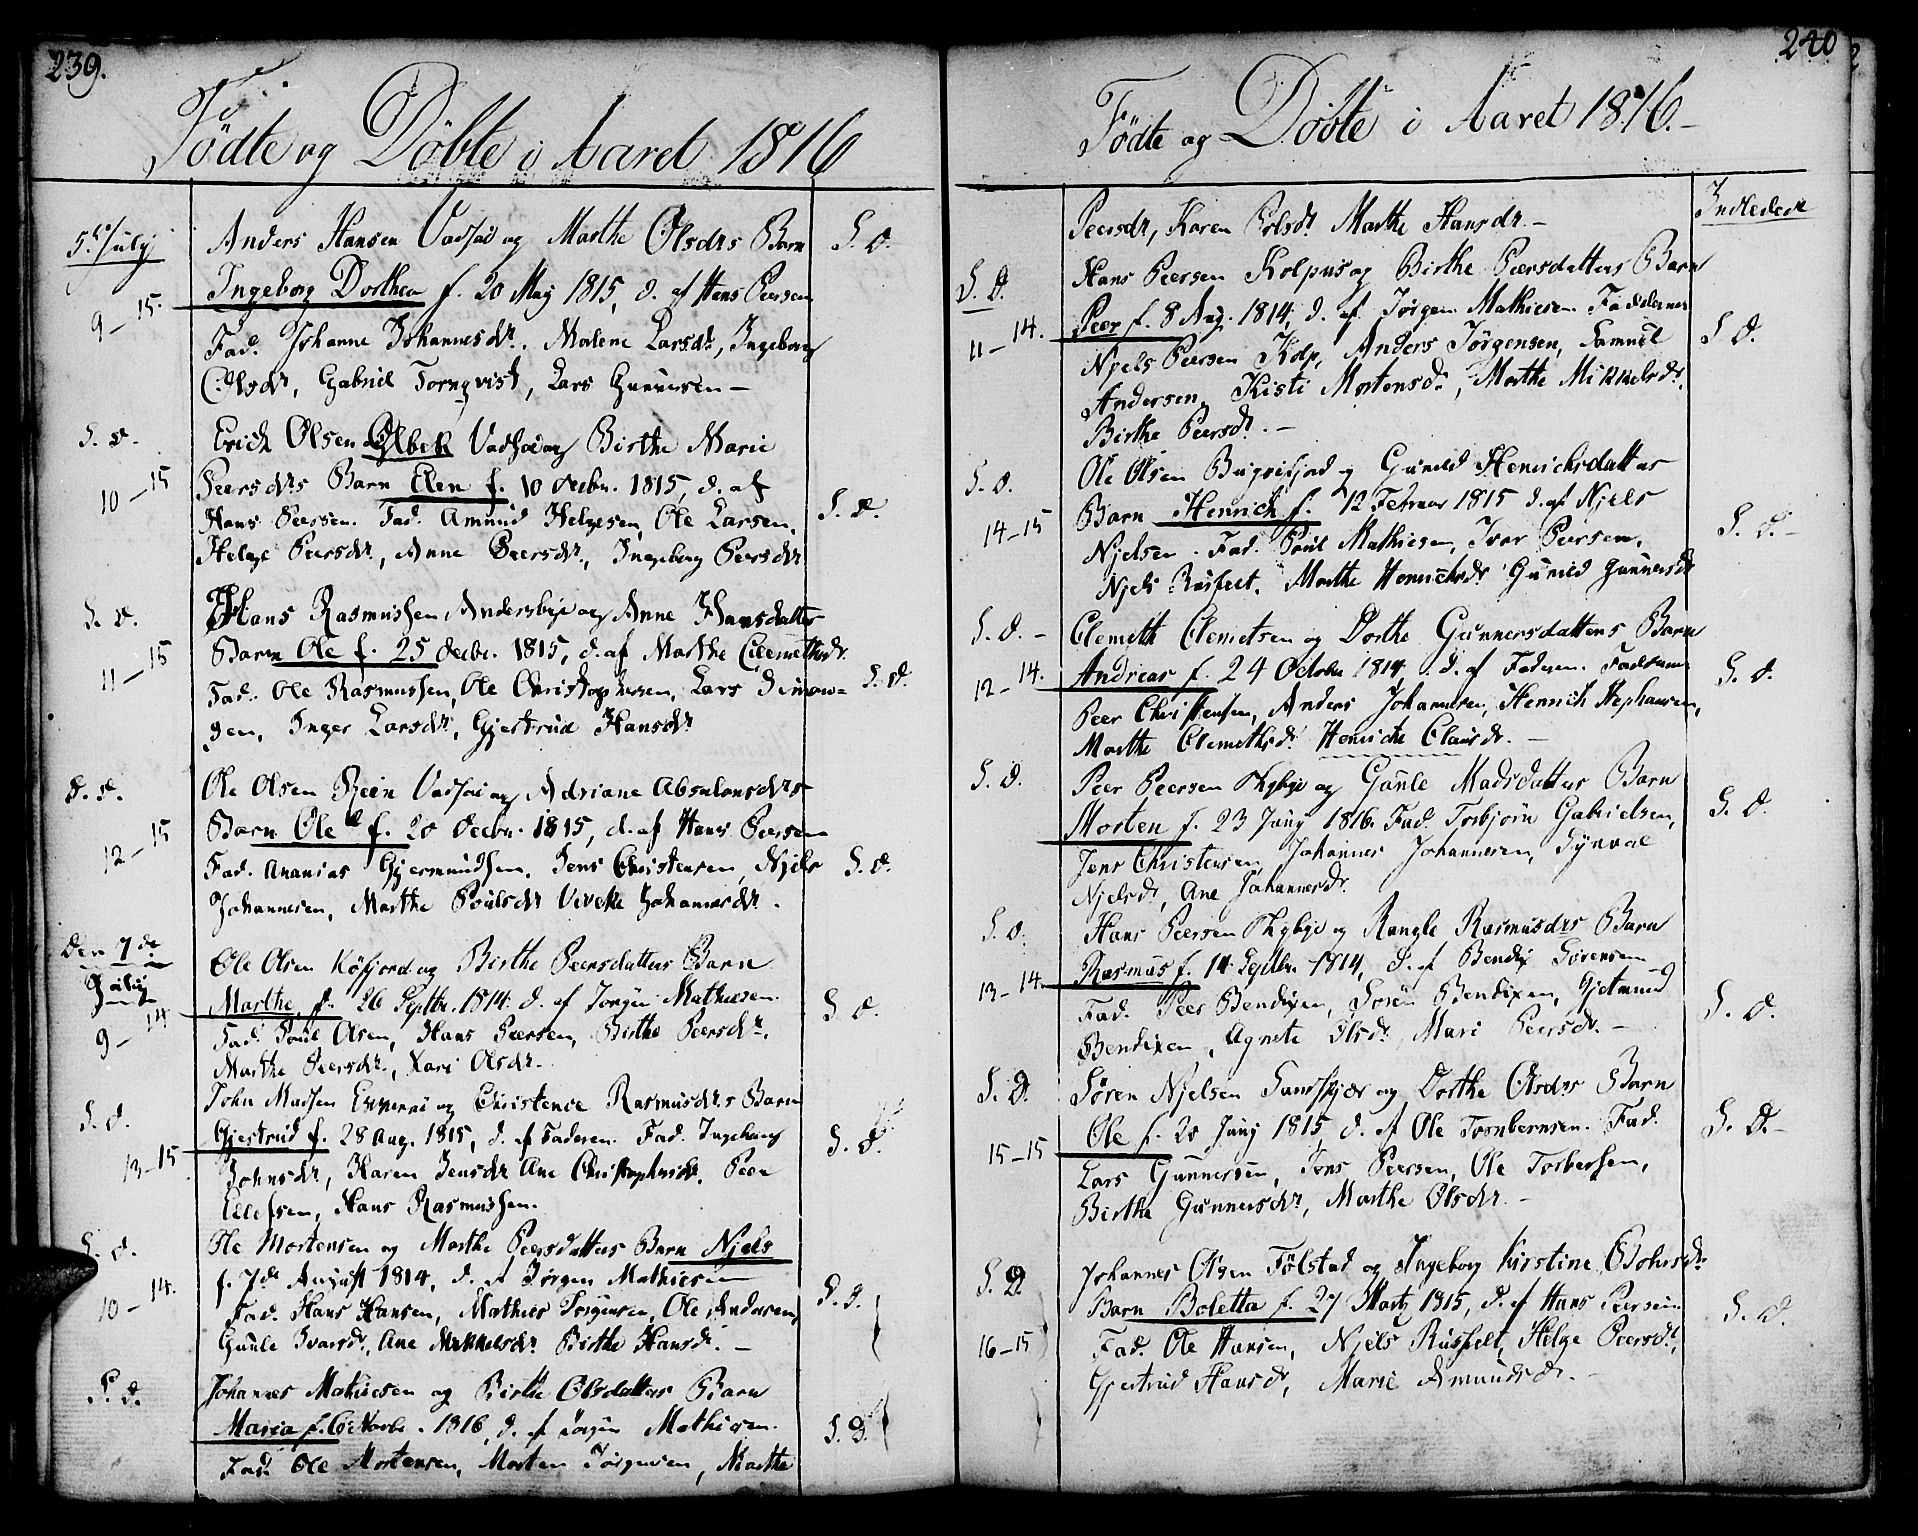 239.
Födte og Döbte i Aaret 1816
5te July Anders Hansen Vadsöe og Marthe Olsdrs Barn S. D.
9-15. Ingeborg Dorthea f. 20 May 1815, d. af Hans Peersen
Fad. Johanne Johannesdr. Malene Larsdr, Ingeborg
Olsdr, Gabriel Tornqvist, Lars Gunnersen -
S. D. Erich Olsen Vadsöe og Birthe Marie
10-15 Peersdrs Barn Elen f. 10 Decbr. 1815, d. af
Hans Peersen. Fad. Amund Helgesen, Ole Larsen, S. D.
Helge Peersdr, Anne Peersdr, Ingeborg Peersdr
S. D. Hans Rasmussen Andersbye og Anne Hansdatters
11-15 Barn Ole f. 25 Decbr. 1815, d. af Marthe Clemethsdr.
Fad. Ole Rasmussen, Ole Christophersen, Lars S. D.
gen, Inger Larsdr, Gjertrud Hansdr
S. D. Ole Olsen Rein Vadsöe og Adriane Absalonsdrs
12-15 Barn Ole f. 20 Decbr. 1815, d. af Hans Peersen
Fad. Ananias Gjermundsen, Jens Christensen, Njels S. D.
Johannesen, Marthe Poulsdr Viveke Johannesdr.
Den 7de July Ole Olsen Köfjord og Birthe Peersdatters Barn
9-14 Marthe f. 26 Septbr. 1814. d. af Jörgen Mathiesen. S. D.
Fad. Poul Olsen, Hans Peersen, Birthe Peersdr.
Marthe Peersdr., Kari Olsdr.
S. D. John Madsen Ekkeröe og Christence Rasmusdrs Barn
13-15 Gjertrud f. 28 Aug. 1815, d. af Faderen. Fad. Ingeborg S. D.
Johnsdr, Karen Jensdr Ane Christophersdr. Peer
Ellefsen, Hans Rasmussen.
S. D. Ole Mortensen og Marthe Peersdatters Barn Njels
10-14. f. 7de August 1814, d. af Jörgen Mathiesen
Fad. Hans Hansen, Mathies Jörgensen, Ole Andersen, S. D.
Gunle Ivarsdr, Ane Mikkelsdr Birthe Hansdr. -
S. D. Johannes Mathiesen og Birthe Olsdatters Barn
Maria f. Novbr. 1816, d. af Jörgen Mathiesen. S. D.
Fad. Ole Mortensen, Morten Jörgensen, Marthe
240
Födte og Döbte i Aaret 1816.-
Indledede
Peersdr, Karen Marthe Hansdr. -
S. D. Hans Peersen Kolpus og Birthe Peersdatters Barn
11-14. Peer f. 8 Aug. 1814, d. af Jörgen Mathiesen. Fadderne
Njels Peersen Kolp, Anders Jörgensen, Samuel S. D.
Andersen, Kisti Mortensdr, Marthe Mikkelsdr,
Birthe Peersdr. -
S. D. Ole Olsen Bugöefjord og Gunild Henrichsdatters
14-15 Barn Henrich f. 12 Februar 1815 d. af Njels
Njelsen. Fad. Poul Mathiesen, Ivar Peersen, S. D. -
Njels Rusfelt, Marthe Henrichsdr Gunild Gunnersdr
S. D. - Clemeth Clemetsen og Dorthe Gunnersdattens Barn
12-14. Andreas f. 24 October 1814, d. af Faderen. Fadderne S. D.
Peer Christensen, Anders Johannesen, Henrich Stephansen,
Marthe Clemethsdr. Henriche Clausdr. -
S. D. Peer Peersen Kybye og Gunle Madsdatters Barn
Morten f. 23 Juny 1816. Fad. Torbjörn Gabrielsen, S. D.
Jens Christensen, Johannes Johannesen, Synval
Njelsdr, Ane Johannesdr.
S. D. Hans Peersen Kybye og Rangle Rasmusdrs Barn
13-14. Rasmus f. 14 Septbr. 1814, d. af Bendix Sörensen
Fad. Peer Bendixen, Sören Bendixen, Gjetmund S. D.
Bendixen, Agnete Olsdr, Mari Peersdr. -
S. D. Sören Njelsen Sandskjær og Dorthe Olsdrs Barn
15-15 Ole f. 20 Juny 1815, d. af Ole Torbernsen. Fad. S. D. -
Lars Gunnersen, Jens Peersen, Ole Torbersen,
Birthe Gunnersdr, Marthe Olsdr. -
S. D. Johannes Olsen Fölstad og Ingeborg Kirstine Johnsdr
16-15 Barn Boletta f. 27 Martz 1815, d. af Hans Peersen S. D.
Fad. Ole Hansen, Njels Rusfelt, Helge Peersdr,
Gjertrud Hansdr, Marie Amundsdr. -